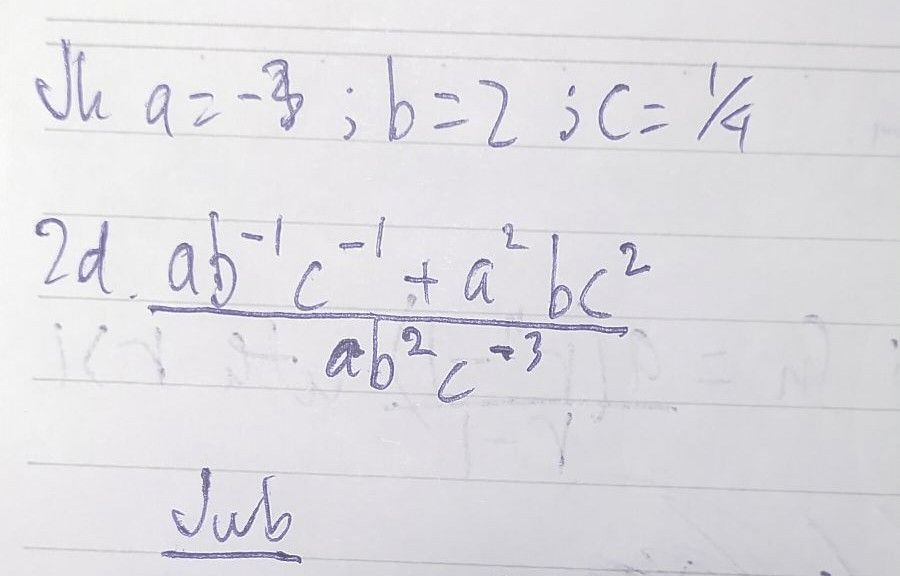 Jk a = -3 ; b = 2 ; c = 1/4
2d. ab⁻¹c⁻¹ + a²bc²
ab²c⁻³
Jwb